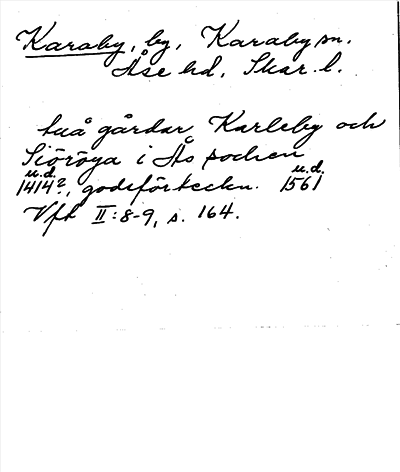 Karaby, by, Karaby sn.
Åse hd, Skar. l.
tuå gårdar Karleby och
Siöröga i Ås sochen
u.d. u.d.
1414?, godsförteckn. 1561
Vft II:8-9, s. 164.